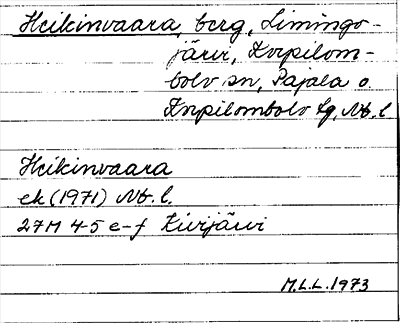 Heikinvaara, berg, Limingo-
järvi, Korpilom-
bolo sn, Pajala o.
Korpilombolo tg, Nb. l
Heikinvaara
ek (1971) Nb. l.
27M 4-5 e-f Kivijärvi
M.L.L. 1973